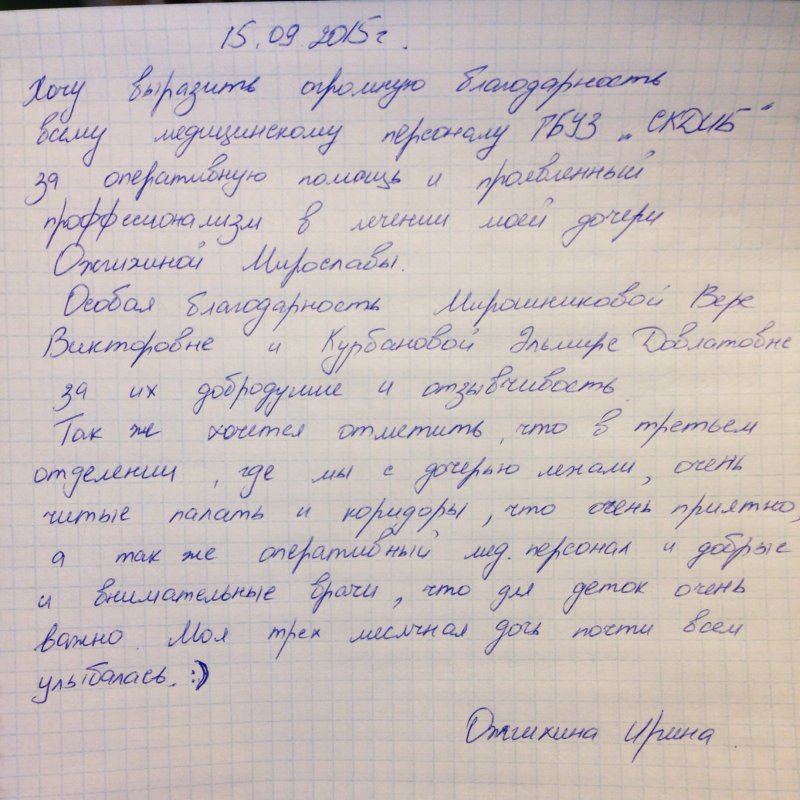 15.09 2015г.
Хочу выразить огромную благодарность
всему медицинскому персоналу ГБУЗ „СКДИБ"
за оперативную помощь и проявленный
проффессионализм в лечении моей дочери
Ожгихиной Мирославы.
Особая благодарность Мирошниковой Вере
Викторовне и Курбановой Эльмире Довлатовне
за их добродушие и отзывчивость
Так же хочется отметить, что в третьем
отделении, где мы с дочерью лежали, очень
читые палаты и коридоры, что очень приятно,
а так же оперативный мед. персонал и добрые
и внимательные врачи, что для деток очень
важно. Моя трех месячная дочь почти всем
улыбалась. :)
Ожгихина Ирина.